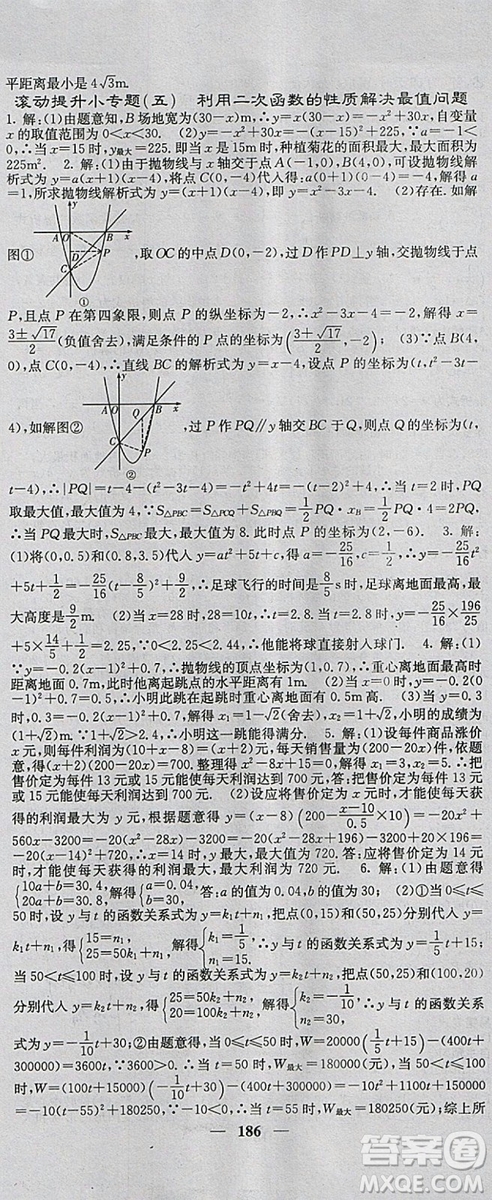 平距离最小是4√3m.
滚动提升小专题(五) 利用二次函数的性质解决最值问题
1. 解:(1)由题意知,B场地宽为(30-x)m,∴y=x(30-x)=-x²+30x,自变
量x的取值范围为0<x<30. (2)y=-x²+30x=-(x-15)²+225,
∴当x=15时,y最大=225. 即当x=15m时,种植菊花的面积最大,最大面积为
225m². 2. 解:(1)由于抛物线与x轴交于点A(-1,0),B(4,0),可设抛物线解
析式为y=a(x+1)(x-4),将点C(0,-4)代入得a(0+1)(0-4)=-4,解得a
=1,所求抛物线解析式为y=(x+1)(x-4),即y=x²-3x-4. (2)存在. 如解
图① A O B x y D P C ① ,取OC的中点D(0,-2),过D作PD⊥y轴,交抛物线于点
P,且点P在第四象限,则点P的纵坐标为-2,∴x²-3x-4=-2,解得x=
(3±√17)/2(负值舍去),满足条件的P点的坐标为((3+√17)/2,-2); (3)∵点B(4,
0),点C(0,-4),∴直线BC的解析式为y=x-4,设点P的坐标为(t,t²-3t-
4),如解图② A O Q B x y C P ② ,过P作PQ∥y轴交BC于Q,则点Q的坐标为(t,
t-4),∴|PQ|=t-4-(t²-3t-4)=-t²+4t=-(t-2)²+4,∴当t=2时,PQ
取最大值,最大值为4. ∵S△PBC=S△PCQ+S△PBQ=1/2PQ·xB=1/2PQ·4=2PQ,
∴当PQ最大时,S△PBC最大,最大值为8. 此时点P的坐标为(2,-6). 3. 解:
(1)将(0,0.5)和(0.8,3.5)代入y=at²+5t+c,得a=-25/16,c=1/2,∴y=-25/16t²
+5t+1/2=-25/16(t-8/5)²+9/2,∴足球飞行的时间是8/5s时,足球离地面最高,最
大高度是9/2m. (2)当x=28时,28=10t,∴t=2.8,当t=2.8时,y=-25/16×196/25
+5×14/5+1/2=9/4<2.44,∴他能将球直接射入球门. 4. 解:(1)
∵y=-0.2(x-1)²+0.7,∴抛物线的顶点坐标为(1,0.7),∴重心离地面最高时
距离地面0.7m,此时他离起跳点的水平距离有1m. (2)当x=0时,y=-0.2(0
-1)²+0.7=0.5(m),∴小明在起跳时重心离地面有0.5m高. (3)当y=0.3
时,0.3=-0.2(x-1)²+0.7,解得x=1+√2或x=1-√2(舍去),∴小明的成绩为
(1+√2)m,∵1+√2>2.4,∴小明这一跳能得满分. 5. 解:(1)设每件商品涨价
x元,则每天利润为(10+x-8)=(2+x)元,每天销售量为(200-20x)件,依题
意,得(2+x)(200-20x)=700. 整理得x²-8x+15=0,解得x=3或x=5,∴把
售价定为每件13元或15元能使每天利润达到700元. 答:把售价定为每件13元
或15元能使每天利润达到700元. (2)设应将售价定为x元时,才能使得每天获
得的利润最大为y元,根据题意得y=(x-8)(200-(x-10)/0.5×10)=-20x²+
560x-3200=-20(x²-28x)-3200=-20(x²-28x+14²)-3200+20×196=
-20(x-14)²+720,∴x=14时,y最大,最大值为720. 答:应将售价定为14元
时,才能使得每天获得的利润最大,最大利润为720元. 6. 解:(1)由题意得
{10a+b=30.4, 20a+b=30.8,解得{a=0.04, b=30. 答:a的值为0.04,b的值为30; (2)①当0≤t≤
50时,设y与t的函数关系式为y=k₁t+n₁,把点(0,15)和(50,25)分别代入y=
k₁t+n₁,得{15=n₁, 25=50k₁+n₁,解得{k₁=1/5, n₁=15,∴y与t的函数关系式为y=1/5t+15;
当50<t≤100时,设y与t的函数关系式为y=k₂t+n₂,把点(50,25)和(100,20)
分别代入y=k₂t+n₂,得{25=50k₂+n₂, 20=100k₂+n₂,解得{k₂=-1/10, n₂=30,∴y与t的函数关系式
为y=-1/10t+30;②由题意得,当0≤t≤50时,W=20000(1/5t+15)-(400t+
300000)=3600t,∵3600>0,∴当t=50时,W最大=180000(元),当50<t≤100
时,W=(400t+15000)(-1/10t+30)-(400t+300000)=-10t²+1100t+150000
=-10(t-55)²+180250,∵-10<0,∴当t=55时,W最大=180250(元);综上所
186
答案圈
MXQE.COM